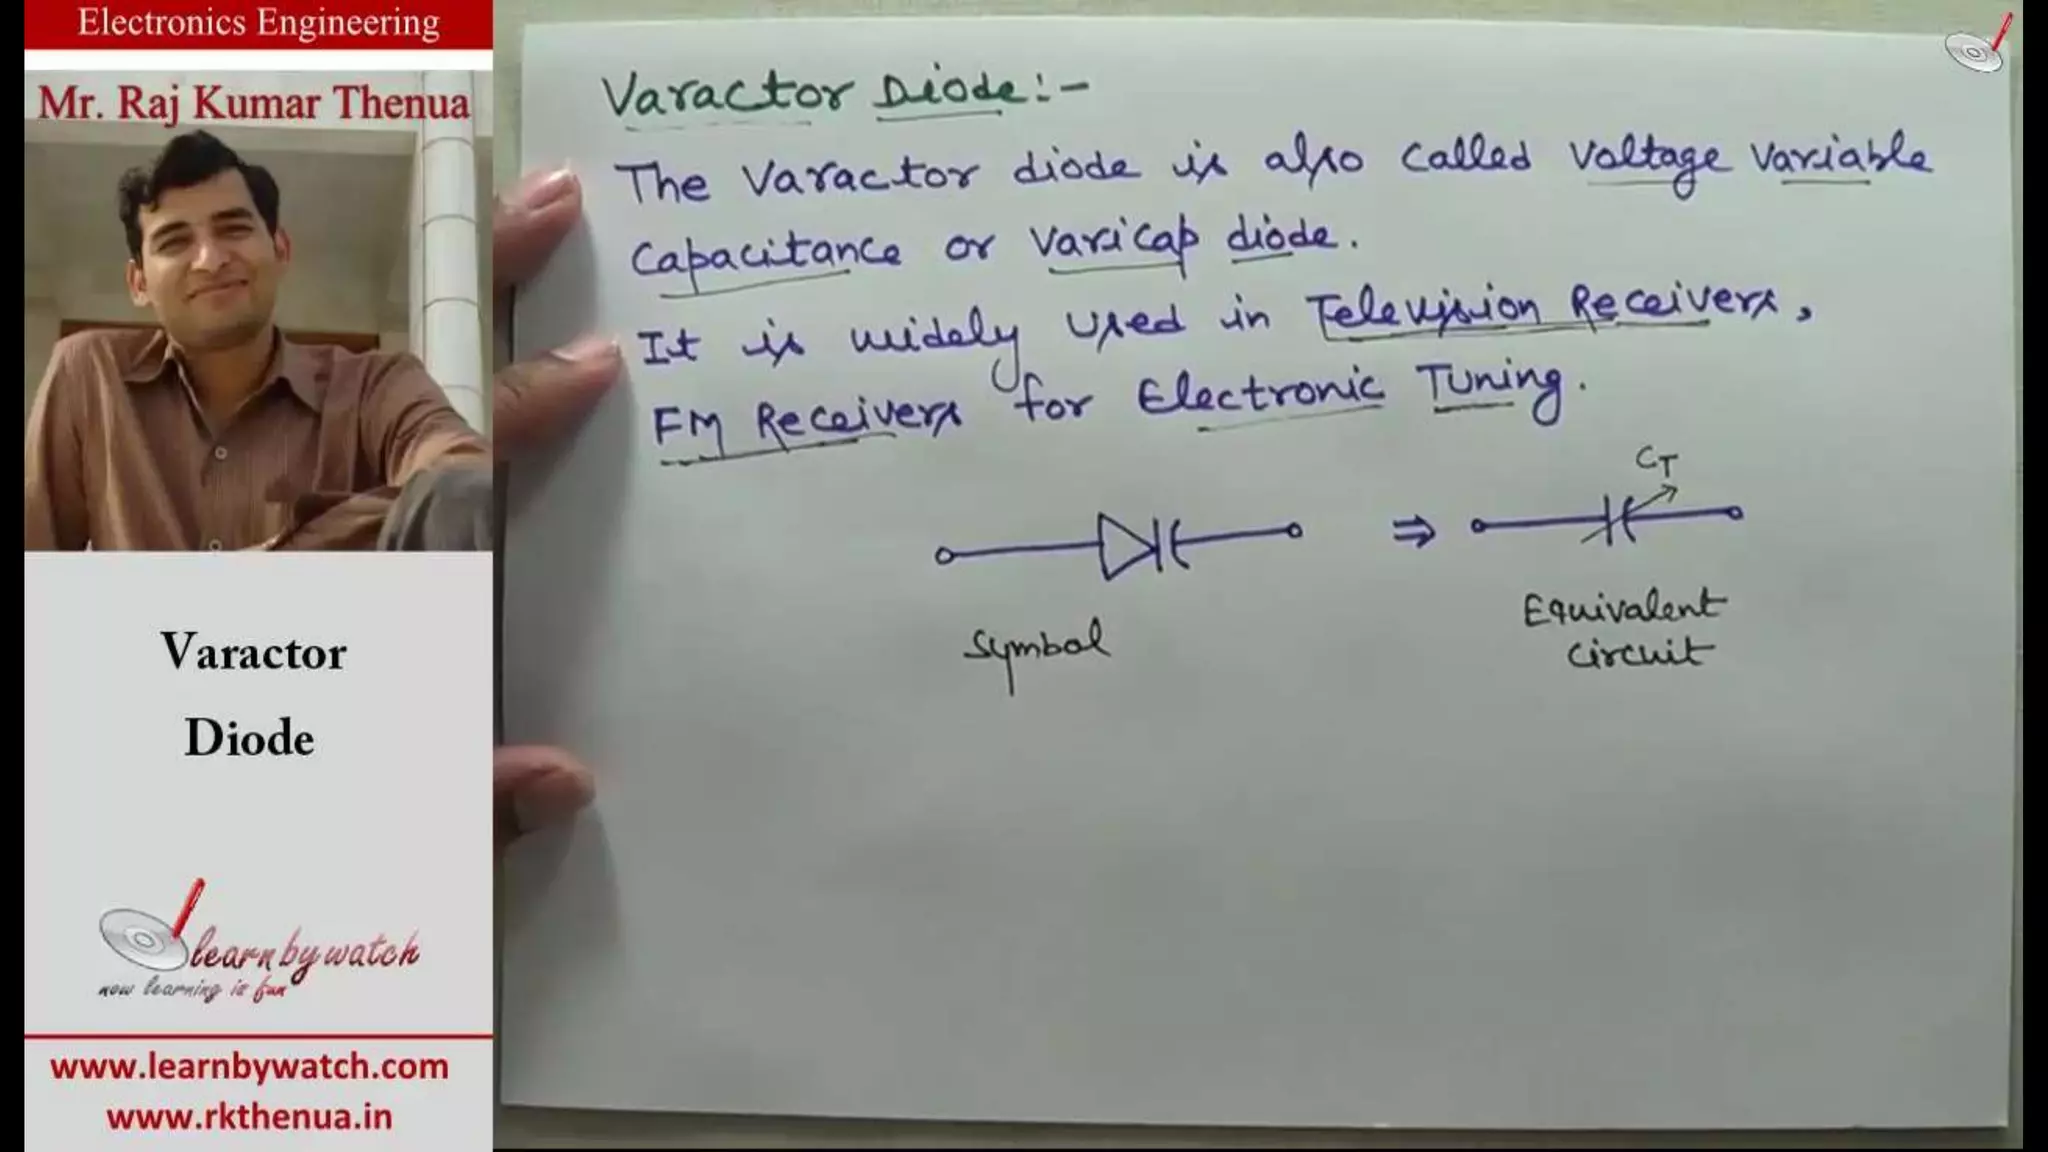 Electronics Engineering
Mr. Raj Kumar Thenua
Varactor
Diode
learnbywatch
now learning is fun
www.learnbywatch.com
www.rkthenua.in
Varactor Diode:-
The Varactor diode is also called Voltage Variable
Capacitance or Varicap diode.
It is widely used in Television Receivers,
FM Receivers for Electronic Tuning.
CT
⇒
Symbol
Equivalent
circuit